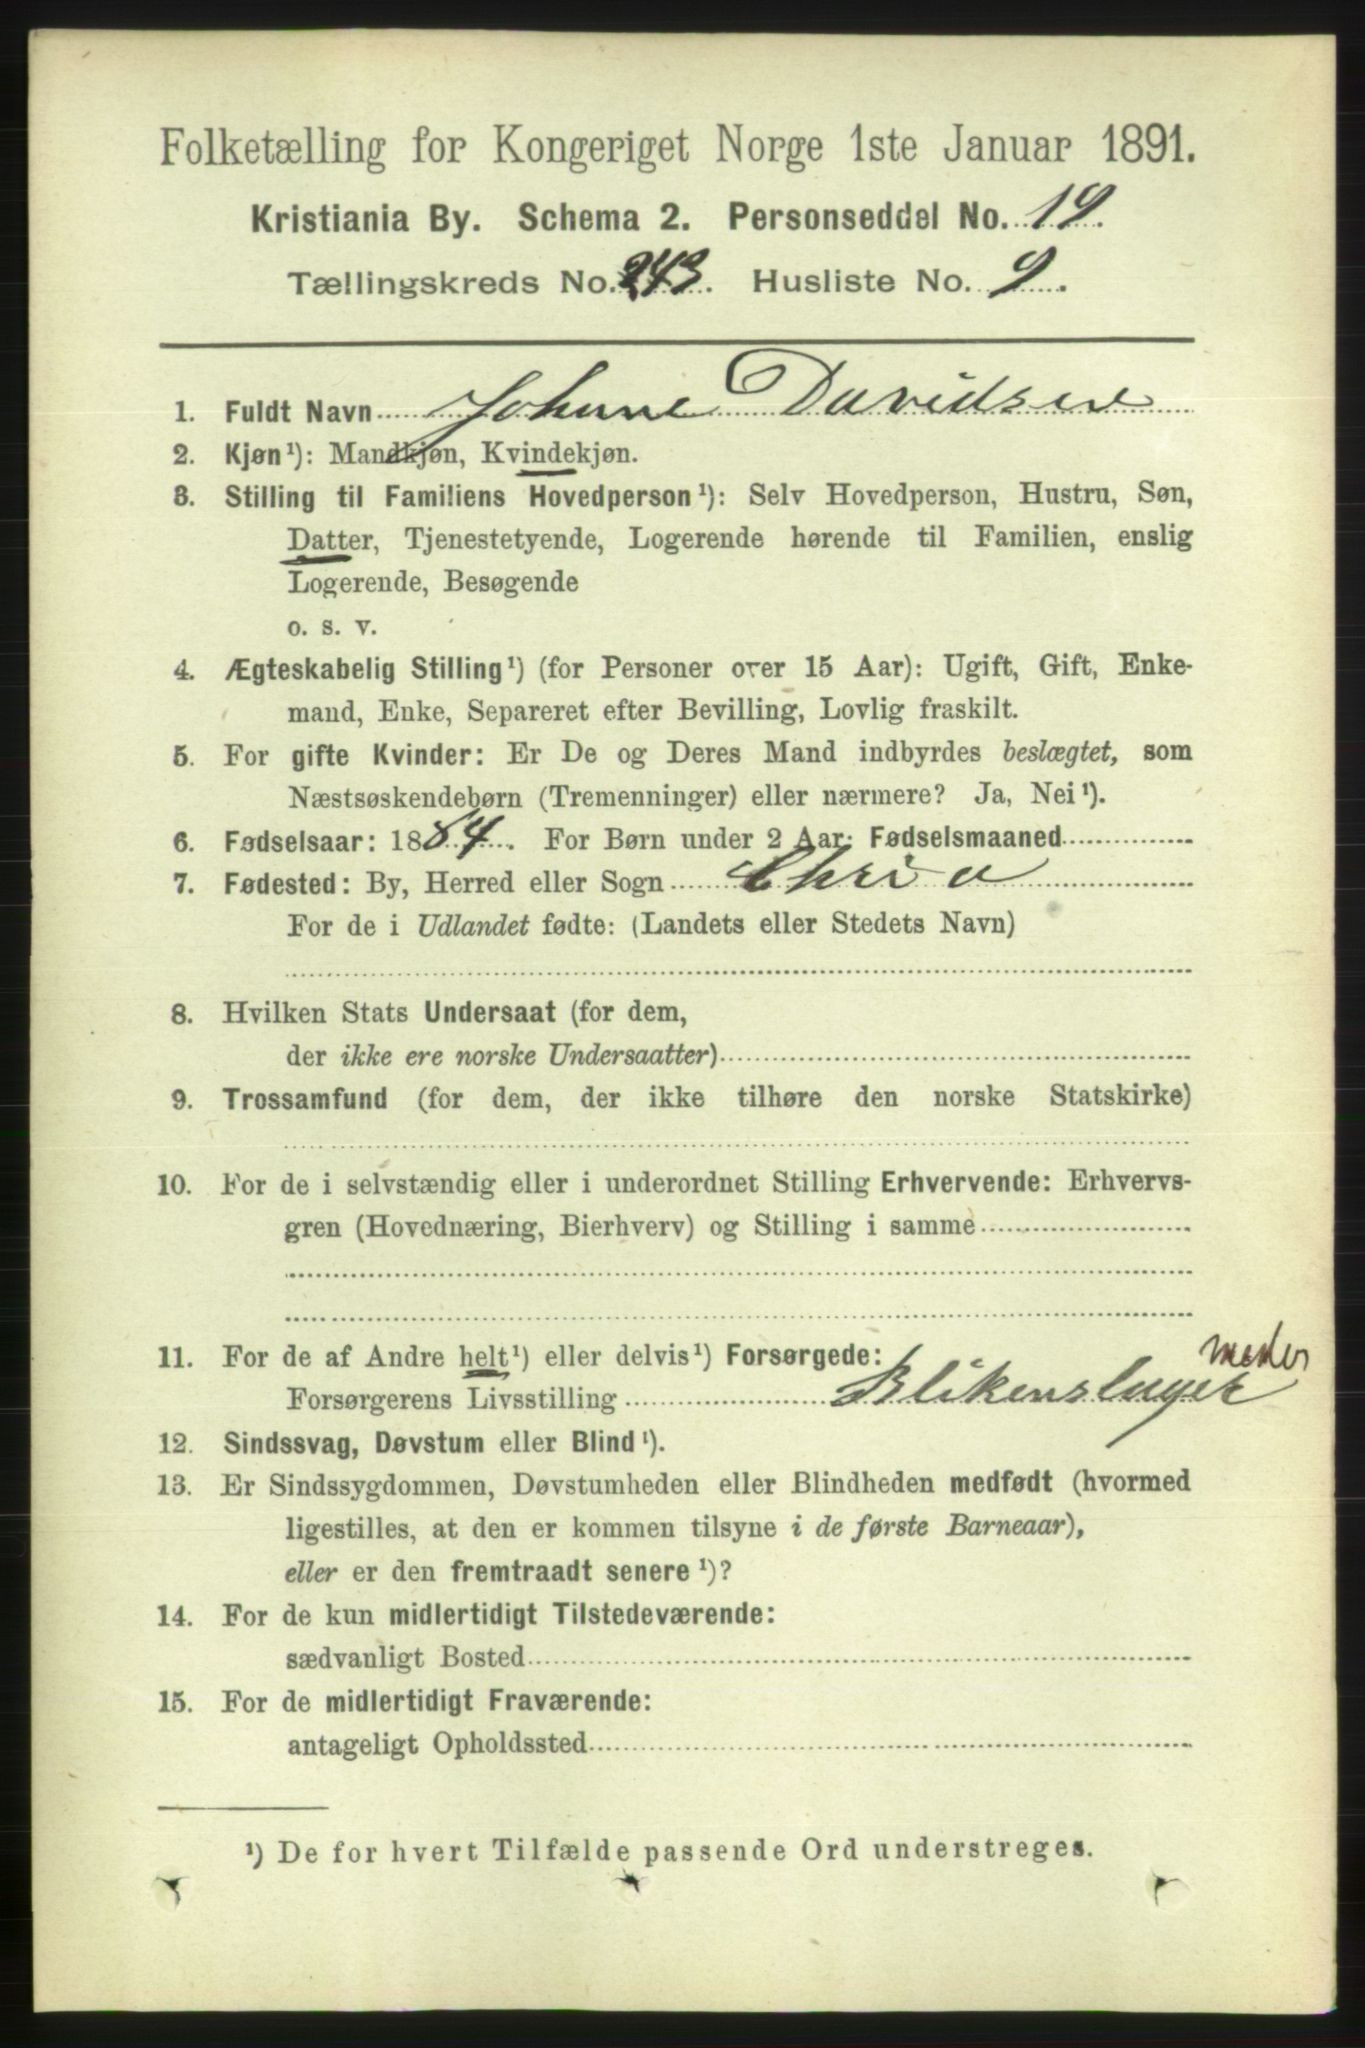 Folketælling for Kongeriget Norge 1ste Januar 1891.
Kristiania By. Schema 2. Personseddel No. 19.
Tællingskreds No. 243. Husliste No. 9.
1. Fuldt Navn Johanne Davidsen
2. Kjøn¹): Mandkjøn, Kvindekjøn.
3. Stilling til Familiens Hovedperson¹): Selv Hovedperson, Hustru, Søn,
Datter, Tjenestetyende, Logerende hørende til Familien, enslig
Logerende, Besøgende
o. s. v.
4. Ægteskabelig Stilling¹) (for Personer over 15 Aar): Ugift, Gift, Enke-
mand, Enke, Separeret efter Bevilling, Lovlig fraskilt.
5. For gifte Kvinder: Er De og Deres Mand indbyrdes beslægtet, som
Næstsøskendebørn (Tremenninger) eller nærmere? Ja, Nei¹).
6. Fødselsaar: 1884. For Børn under 2 Aar: Fødselsmaaned
7. Fødested: By, Herred eller Sogn Chria
For de i Udlandet fødte: (Landets eller Stedets Navn)
8. Hvilken Stats Undersaat (for dem,
der ikke ere norske Undersaatter)
9. Trossamfund (for dem, der ikke tilhøre den norske Statskirke)
10. For de i selvstændig eller i underordnet Stilling Erhvervende: Erhvervs-
gren (Hovednæring, Bierhverv) og Stilling i samme
11. For de af Andre helt¹) eller delvis¹) Forsørgede:
Forsørgerens Livsstilling Blikenslager mester
12. Sindssvag, Døvstum eller Blind¹).
13. Er Sindssygdommen, Døvstumheden eller Blindheden medfødt (hvormed
ligestilles, at den er kommen tilsyne i de første Barneaar),
eller er den fremtraadt senere¹)?
14. For de kun midlertidigt Tilstedeværende:
sædvanligt Bosted
15. For de midlertidigt Fraværende:
antageligt Opholdssted
¹) De for hvert Tilfælde passende Ord understreges.